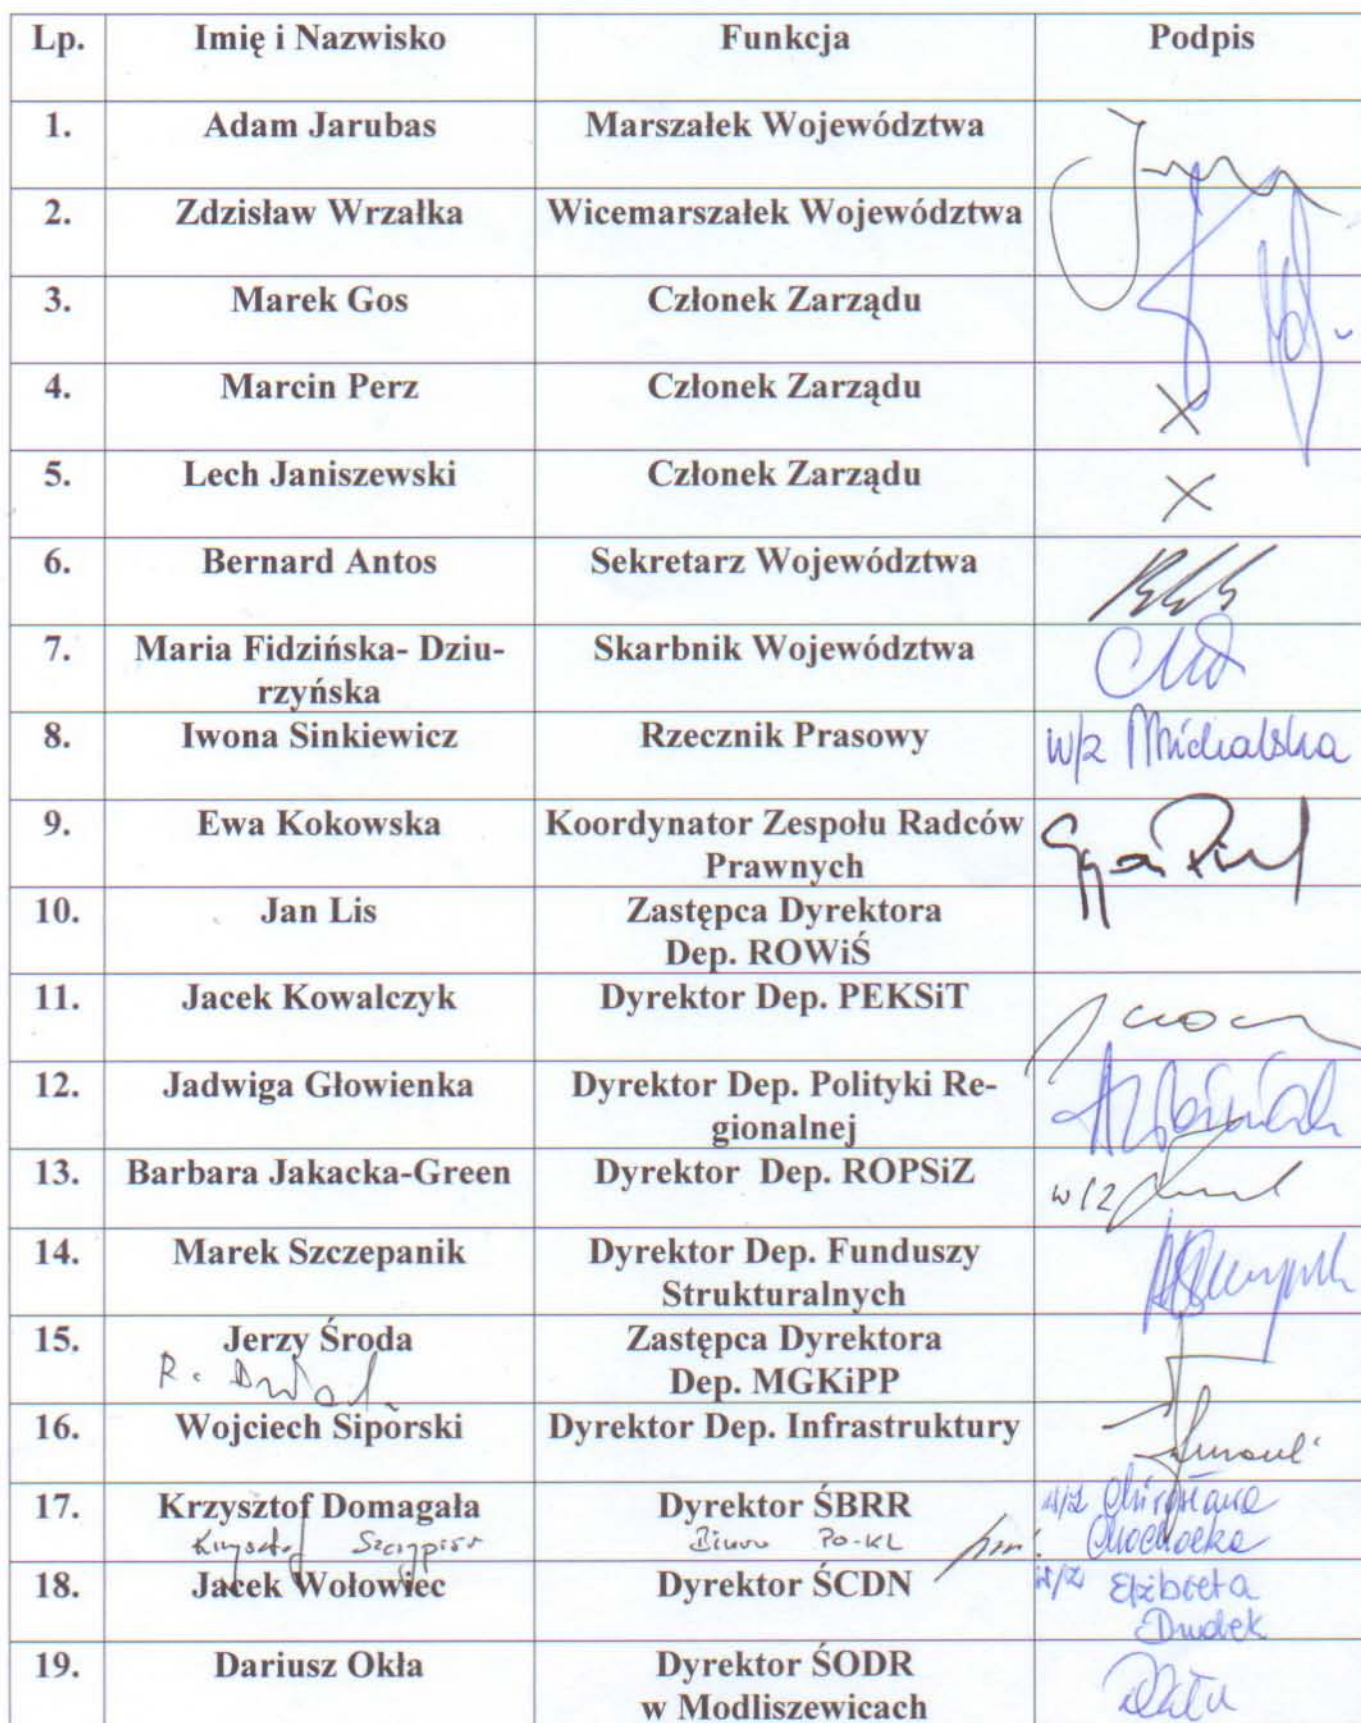 Lp. Imię i Nazwisko Funkcja Podpis
1. Adam Jarubas Marszałek Województwa
2. Zdzisław Wrzałka Wicemarszałek Województwa
3. Marek Gos Członek Zarządu
4. Marcin Perz Członek Zarządu X
5. Lech Janiszewski Członek Zarządu X
6. Bernard Antos Sekretarz Województwa
7. Maria Fidzińska- Dziu- Skarbnik Województwa
rzyńska
8. Iwona Sinkiewicz Rzecznik Prasowy w/z Michalska
9. Ewa Kokowska Koordynator Zespołu Radców
Prawnych
10. Jan Lis Zastępca Dyrektora
Dep. ROWiŚ
11. Jacek Kowalczyk Dyrektor Dep. PEKSiT
12. Jadwiga Głowienka Dyrektor Dep. Polityki Re-
gionalnej
13. Barbara Jakacka-Green Dyrektor Dep. ROPSiZ w/z
14. Marek Szczepanik Dyrektor Dep. Funduszy
Strukturalnych
15. Jerzy Środa Zastępca Dyrektora
R. Dep. MGKiPP
16. Wojciech Siporski Dyrektor Dep. Infrastruktury
17. Krzysztof Domagała Dyrektor ŚBRR w/z
Krzysztof Szczypiór Biuro PO-KL Chochocka
18. Jacek Wołowiec Dyrektor ŚCDN w/z Elżbieta
Dudek
19. Dariusz Okła Dyrektor ŚODR
w Modliszewicach